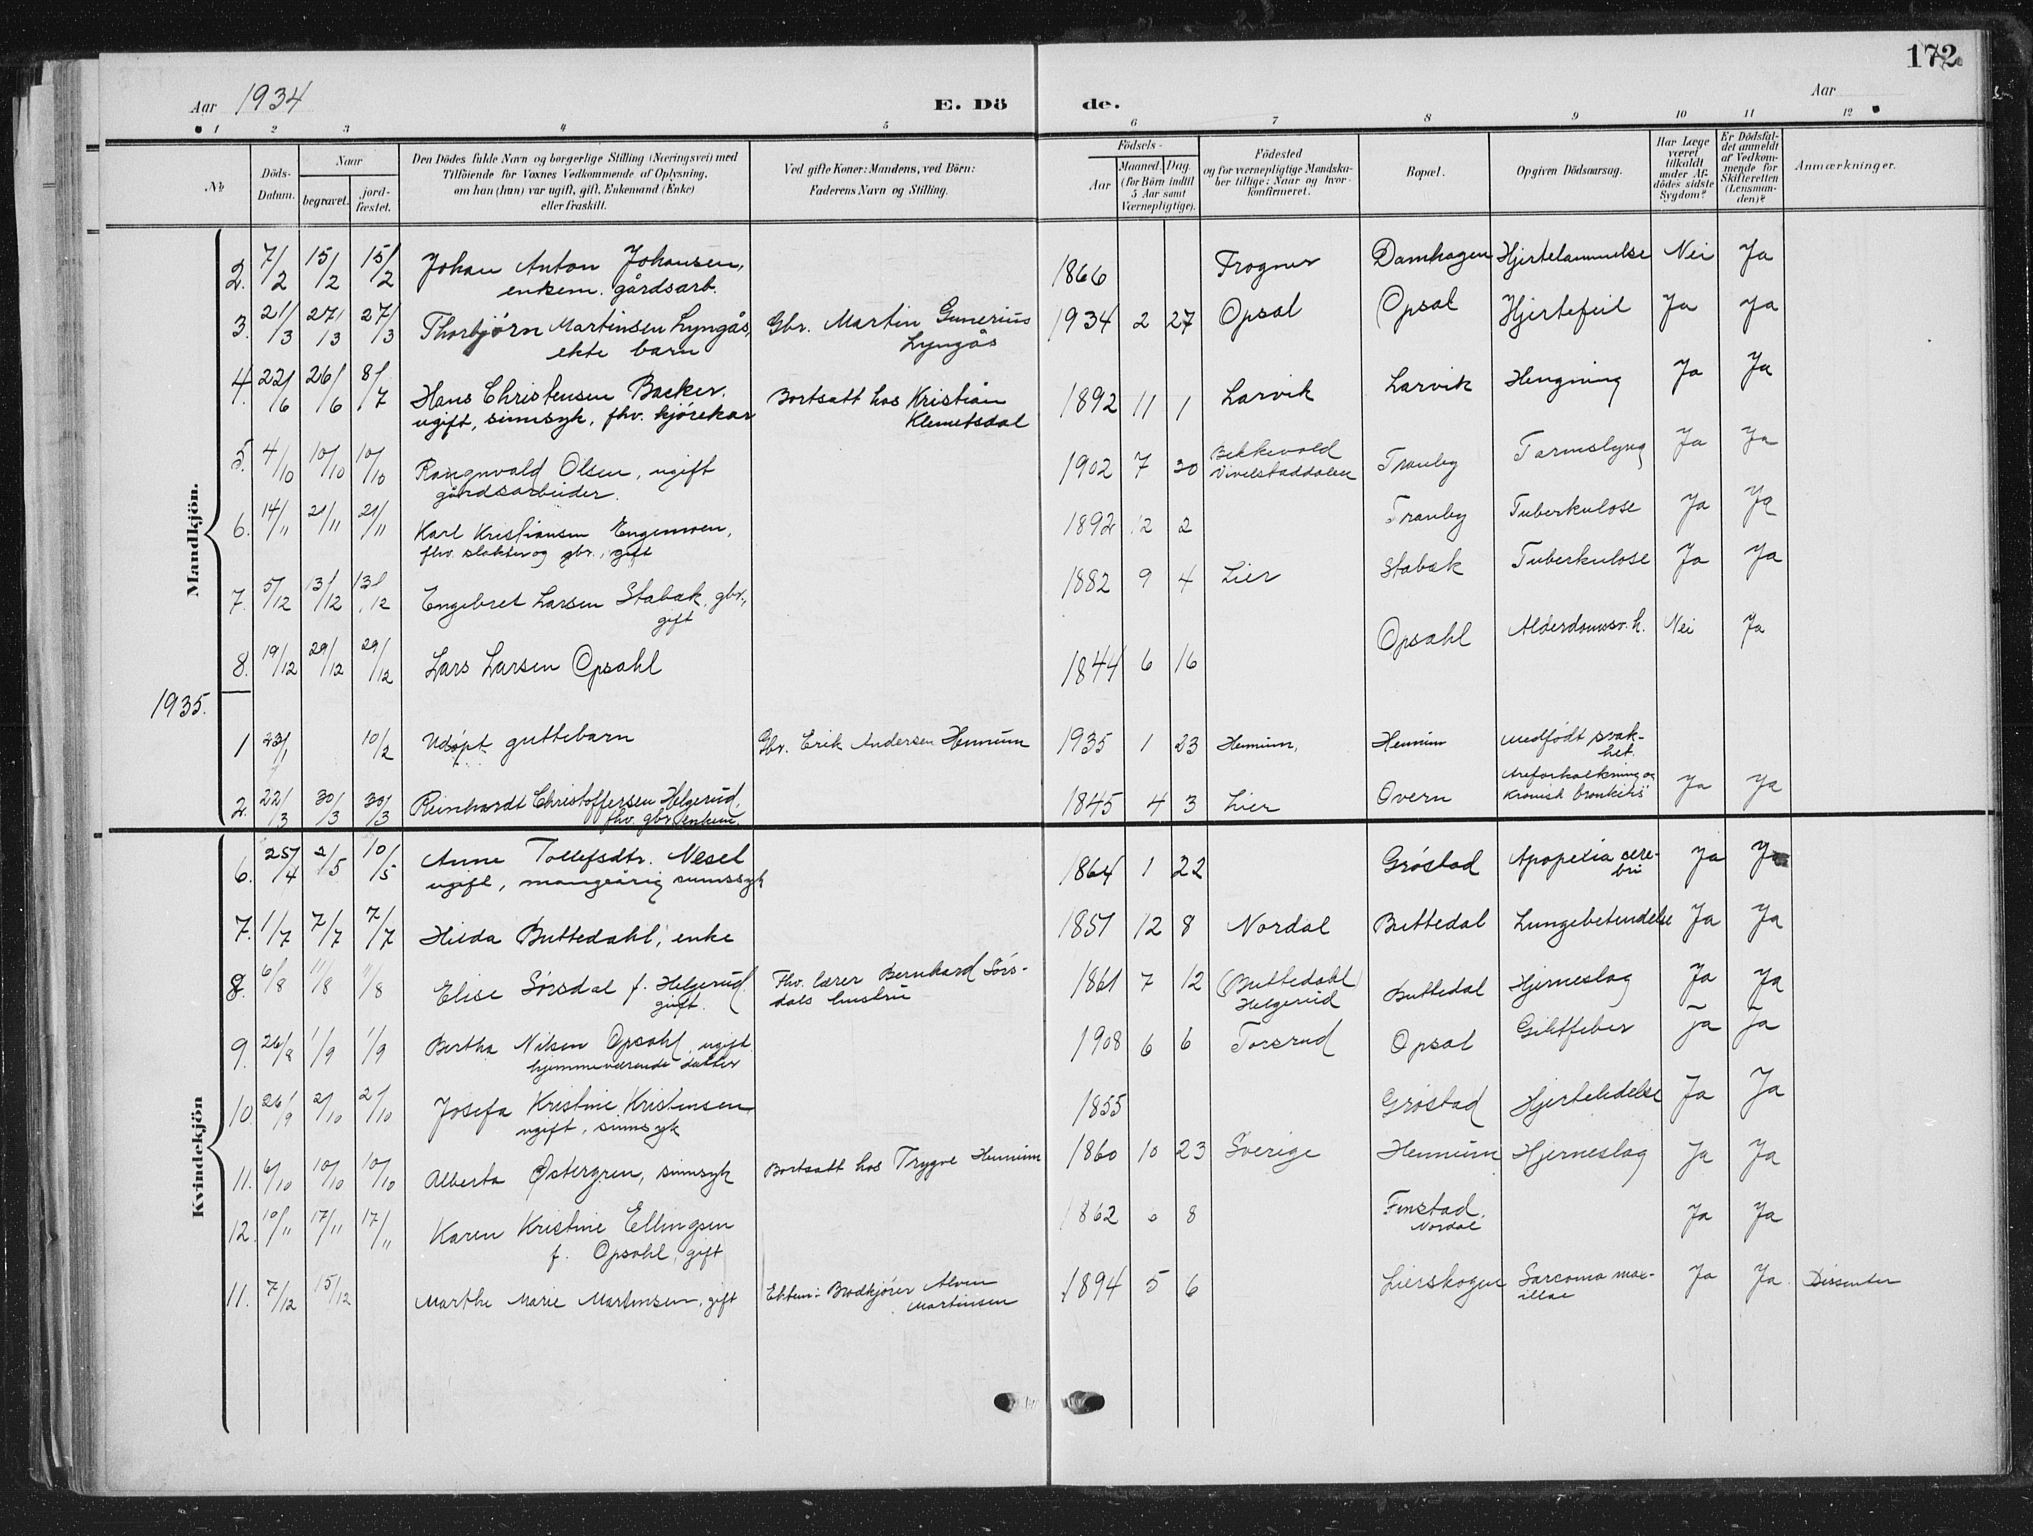 172
Aar 1934
E. Dö de.
Aar
1 2 3 4 5 6 7 8 9 10 11 12
No
Döds-Datum.
Naar
begravet.
jord-fæstet.
Den Dödes fulde Navn og borgerlige Stilling (Næringsvei) med
Tilföiende for Voxnes Vedkommende af Oplysning,
om han (hun) var ugift, gift, Enkemand (Enke)
eller fraskilt.
Ved gifte Koner: Mandens, ved Börn:
Faderens Navn og Stilling.
Födsels-
Aar
Maaned. Dag
(for Börn indtil
5 Aar samt
Værnepligtige).
Födested
og for værnepligtige Mandska-
ber tillige: Naar og hvor
konfirmeret.
Bopæl.
Opgiven Dödsaarsag.
Har Læge
været
tilkaldt
under Af-
dödes sidste
Sygdom?
Er Dödsfal-
det anmeldt
af Vedkom-
mende for
Skifteretten
(Lensman-
den)?
Anmærkninger.
Mandkjön.
2. 7/2 15/2 15/2 Johan Anton Johansen, 1866 Frogner Damhagen Hjertelammelse Nei Ja
enkem. gårdsarb.
3. 21/3 27/3 27/3 Thorbjørn Martinsen Lyngås, Gbr. Martin Gunerius 1934 2 27 Opsal Opsal Hjertefeil Ja Ja
ekte barn Lyngås
4. 22/6 26/6 8/7 Hans Christensen Backer. Bortsatt hos Kristian 1892 11 1 Larvik Larvik Hengning Ja Ja
ugift, sinnsyk, fhv. kjørekar Klemetsdal
5. 4/10 10/10 10/10 Rangnvald Olsen, ugift 1902 7 30 Bekkevold Tranby Tarmslyng Ja Ja
gårdsarbeider. Vivelstaddalen
6. 14/11 21/11 21/11 Karl Kristiansen Engenmoen, 1892 12 2 Tranby Tuberkulose Ja Ja
fhv. slakter og gbr., gift
7. 5/12 13/12 13/12 Engebret Larsen Stabæk, gbr., 1882 9 4 Lier Stabæk Tuberkulose Ja Ja
gift
8. 19/12 29/12 29/12 Lars Larsen Opsahl 1844 6 16 Opsahl Alderdomssv.h. Nei Ja
1935.
1 23/1 10/2 Udøpt guttebarn Gbr. Erik Andersen Hennum 1935 1 23 Hennum, Hennum medfødt svak-
het.
2. 22/3 30/3 30/3 Reinhardt Christoffersen Helgerud, 1845 4 3 Lier Overn Areforkalkning og Ja Ja
fhv. gbr. enkem. kronisk bronkitis
Kvindekjön
6. 25/4 2/5 10/5 Anne Tollefsdtr. Nesel 1864 1 22 Grøstad Apopexia cere- Ja Ja
ugift, mangeårig sinnssyk bri
7. 1/7 7/7 7/7 Hilda Buttedahl, enke 1851 12 8 Nordal Buttedal Lungebetendelse Ja Ja
8. 6/8 11/8 11/8 Elise Sørsdal f. Helgerud. Fhv. lærer Bernhard Sørs- 1861 7 12 (Buttedahl) Buttedal Hjerneslag Ja Ja
gift. dals hustru Helgerud
9. 26/8 1/9 1/9 Bertha Nilsen Opsahl, ugift 1908 6 6 Torsrud Opsal Giktfeber Ja Ja
hjemmeværende datter
10. 26/9 2/10 2/10 Josefa Kristine Kristensen 1855 Grøstad Hjertelidelse Ja Ja
ugift, sinnsyk
11. 6/10 10/10 10/10 Alberta Østergren, sinnsyk Bortsatt hos Trygve Hennum 1860 10 23 Sverige Hennum Hjerneslag Ja Ja
12. 10/11 17/11 17/11 Karen Kristine Ellingsen 1862 8 Finstad. Ja Ja
f. Opsahl, gift Nordal
11. 7/12 15/12 Marthe Marie Martinsen, gift Ektem: Brødkjører Alvin 1894 5 6 Lierskogen Sarcoma max- Ja Ja Dissenter
Martinsen illae